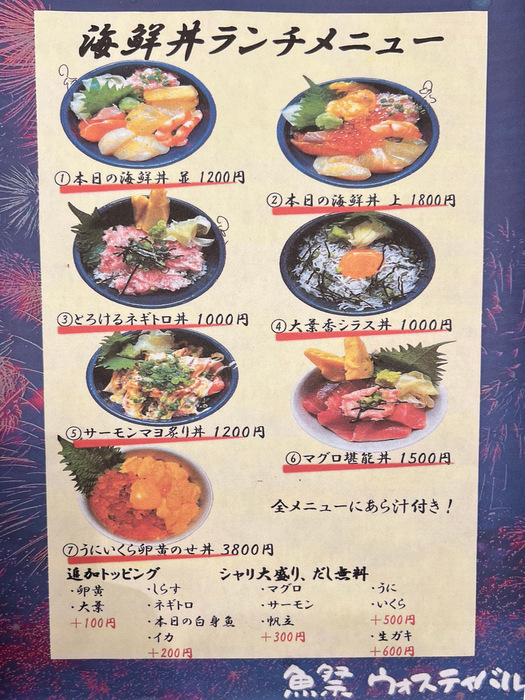 海鮮丼ランチメニュー
①本日の海鮮丼 並 1200円
②本日の海鮮丼 上 1800円
③とろけるネギトロ丼 1000円
④大葉香シラス丼 1000円
⑤サーモンマヨ炙り丼 1200円
⑥マグロ堪能丼 1500円
全メニューにあら汁付き!
⑦うにいくら卵黄のせ丼 3800円
追加トッピング
シャリ大盛り、だし無料
・卵黄
・大葉
+100円
・しらす
・ネギトロ
・本日の白身魚
・イカ
+200円
・マグロ
・サーモン
・帆立
+300円
・うに
・いくら
+500円
・生ガキ
+600円
魚祭 ウオスティバル